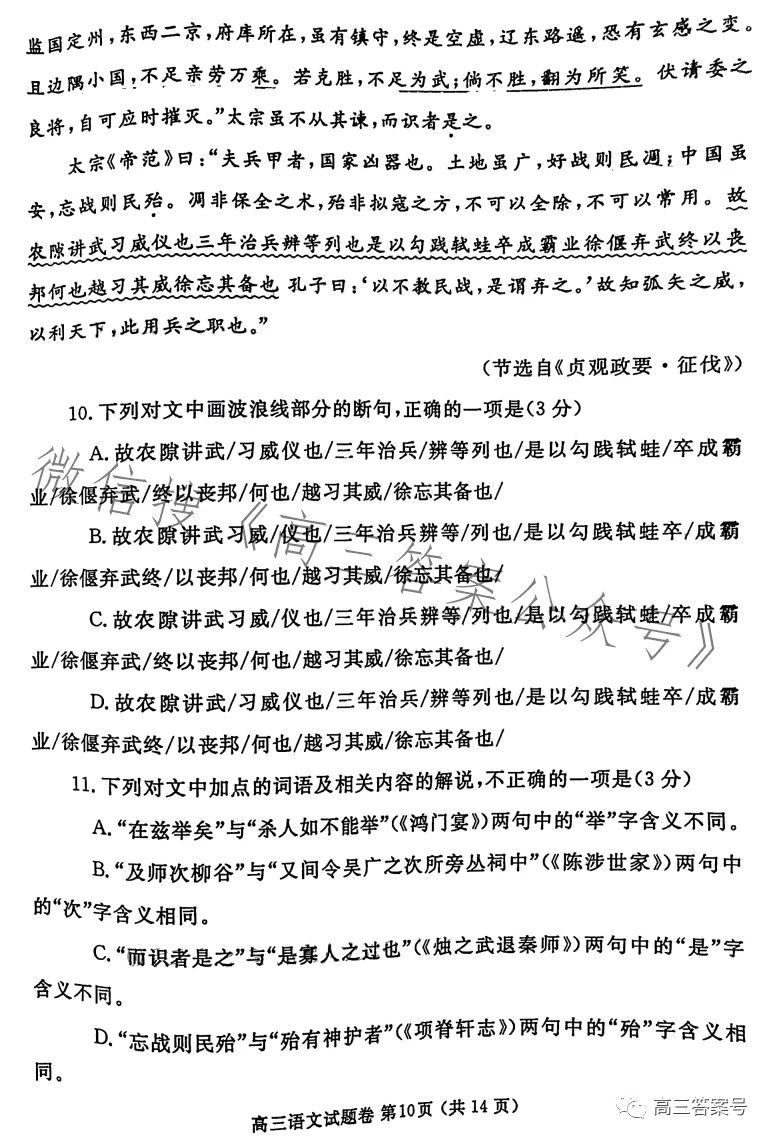 监国定州，东西二京，府库所在，虽有镇守，终是空虚，辽东路遥，恐有玄感之变。
且边隅小国，不足亲劳万乘。若克胜，不足为武；倘不胜，翻为所笑。伏请委之
良将，自可应时摧灭。”太宗虽不从其谏，而识者是之。
太宗《帝范》曰：“夫兵甲者，国家凶器也。土地虽广，好战则民凋；中国虽
安，忘战则民殆。凋非保全之术，殆非拟寇之方，不可以全除，不可以常用。故
农隙讲武习威仪也三年治兵辨等列也是以勾践轼蛙卒成霸业徐偃弃武终以丧
邦何也越习其威徐忘其备也 孔子曰：‘以不教民战，是谓弃之。’故知弧矢之威，
以利天下，此用兵之职也。”
（节选自《贞观政要·征伐》）
10.下列对文中画波浪线部分的断句，正确的一项是（3分）
A.故农隙讲武/习威仪也/三年治兵/辨等列也/是以勾践轼蛙/卒成霸
业/徐偃弃武/终以丧邦/何也/越习其威/徐忘其备也/
B.故农隙讲武习威/仪也/三年治兵辨等/列也/是以勾践轼蛙卒/成霸
业/徐偃弃武终/以丧邦/何也/越习其威/徐忘其备也/
C.故农隙讲武习威/仪也/三年治兵辨等/列也/是以勾践轼蛙/卒成霸
业/徐偃弃武/终以丧邦/何也/越习其威/徐忘其备也/
D.故农隙讲武/习威仪也/三年治兵/辨等列也/是以勾践轼蛙卒/成霸
业/徐偃弃武终/以丧邦/何也/越习其威/徐忘其备也/
11.下列对文中加点的词语及相关内容的解说，不正确的一项是（3分）
A.“在兹举矣”与“杀人如不能举”（《鸿门宴》）两句中的“举”字含义不同。
B.“及师次柳谷”与“又间令吴广之次所旁丛祠中”（《陈涉世家》）两句中
的“次”字含义相同。
C.“而识者是之”与“是寡人之过也”（《烛之武退秦师》）两句中的“是”字
含义不同。
D.“忘战则民殆”与“殆有神护者”（《项脊轩志》）两句中的“殆”字含义相
同。
高三语文试题卷 第10页（共14页）
微信搜《高三答案公众号》
高三答案号